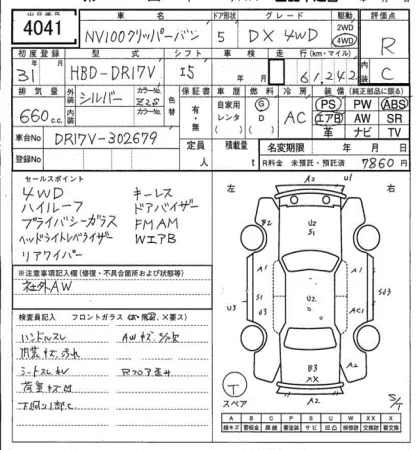 出品番号 車名 ドア形状 グレード 駆動 評価点
4041 NV100クリッパーバン 5 DX 4WD 2WD 4WD R
初度登録 型式 シフト 車検 走行(km・マイル) C
31 HBD-DR17V I5 年 月 6 1,2 4 2
排気量 外装 シルバー カラーNo. Z2S 色替 保証書 車歴 燃料 冷房 装備(純正部品に限る)
660 c.c. 内装 カラーNo. 有・無 自家用 レンタ G D AC PS PW ABS
エアB AW SR
革 ナビ TV
車台No DR17V-302679 定員 人 積載量 t 名変期限 年 月 日
登録No R料金 未預託・預託済 7860円
セールスポイント
4WD キーレス
ハイルーフ ドアバイザー
プライバシーガラス FM AM
ヘッドライトレベライザー WエアB
リアワイパー
※注意事項記入欄(修復・不具合箇所および状態等)
社外AW
検査員記入 フロントガラス
ハンドルスレ AWキズ
内装キズ汚れ
シートスレ Rフロア歪み
荷室キズ凹
下廻り一部C
左 右
A2 U1
B2 U2 S1
A1 A1
U3 S1 U2 SU3
A2 B3 XX A1
A2
T スペア S/T
A B C P S U W X XX X
線キズ 要板金 腐蝕 要塗装 サビ 凹凸 補修跡 要交換